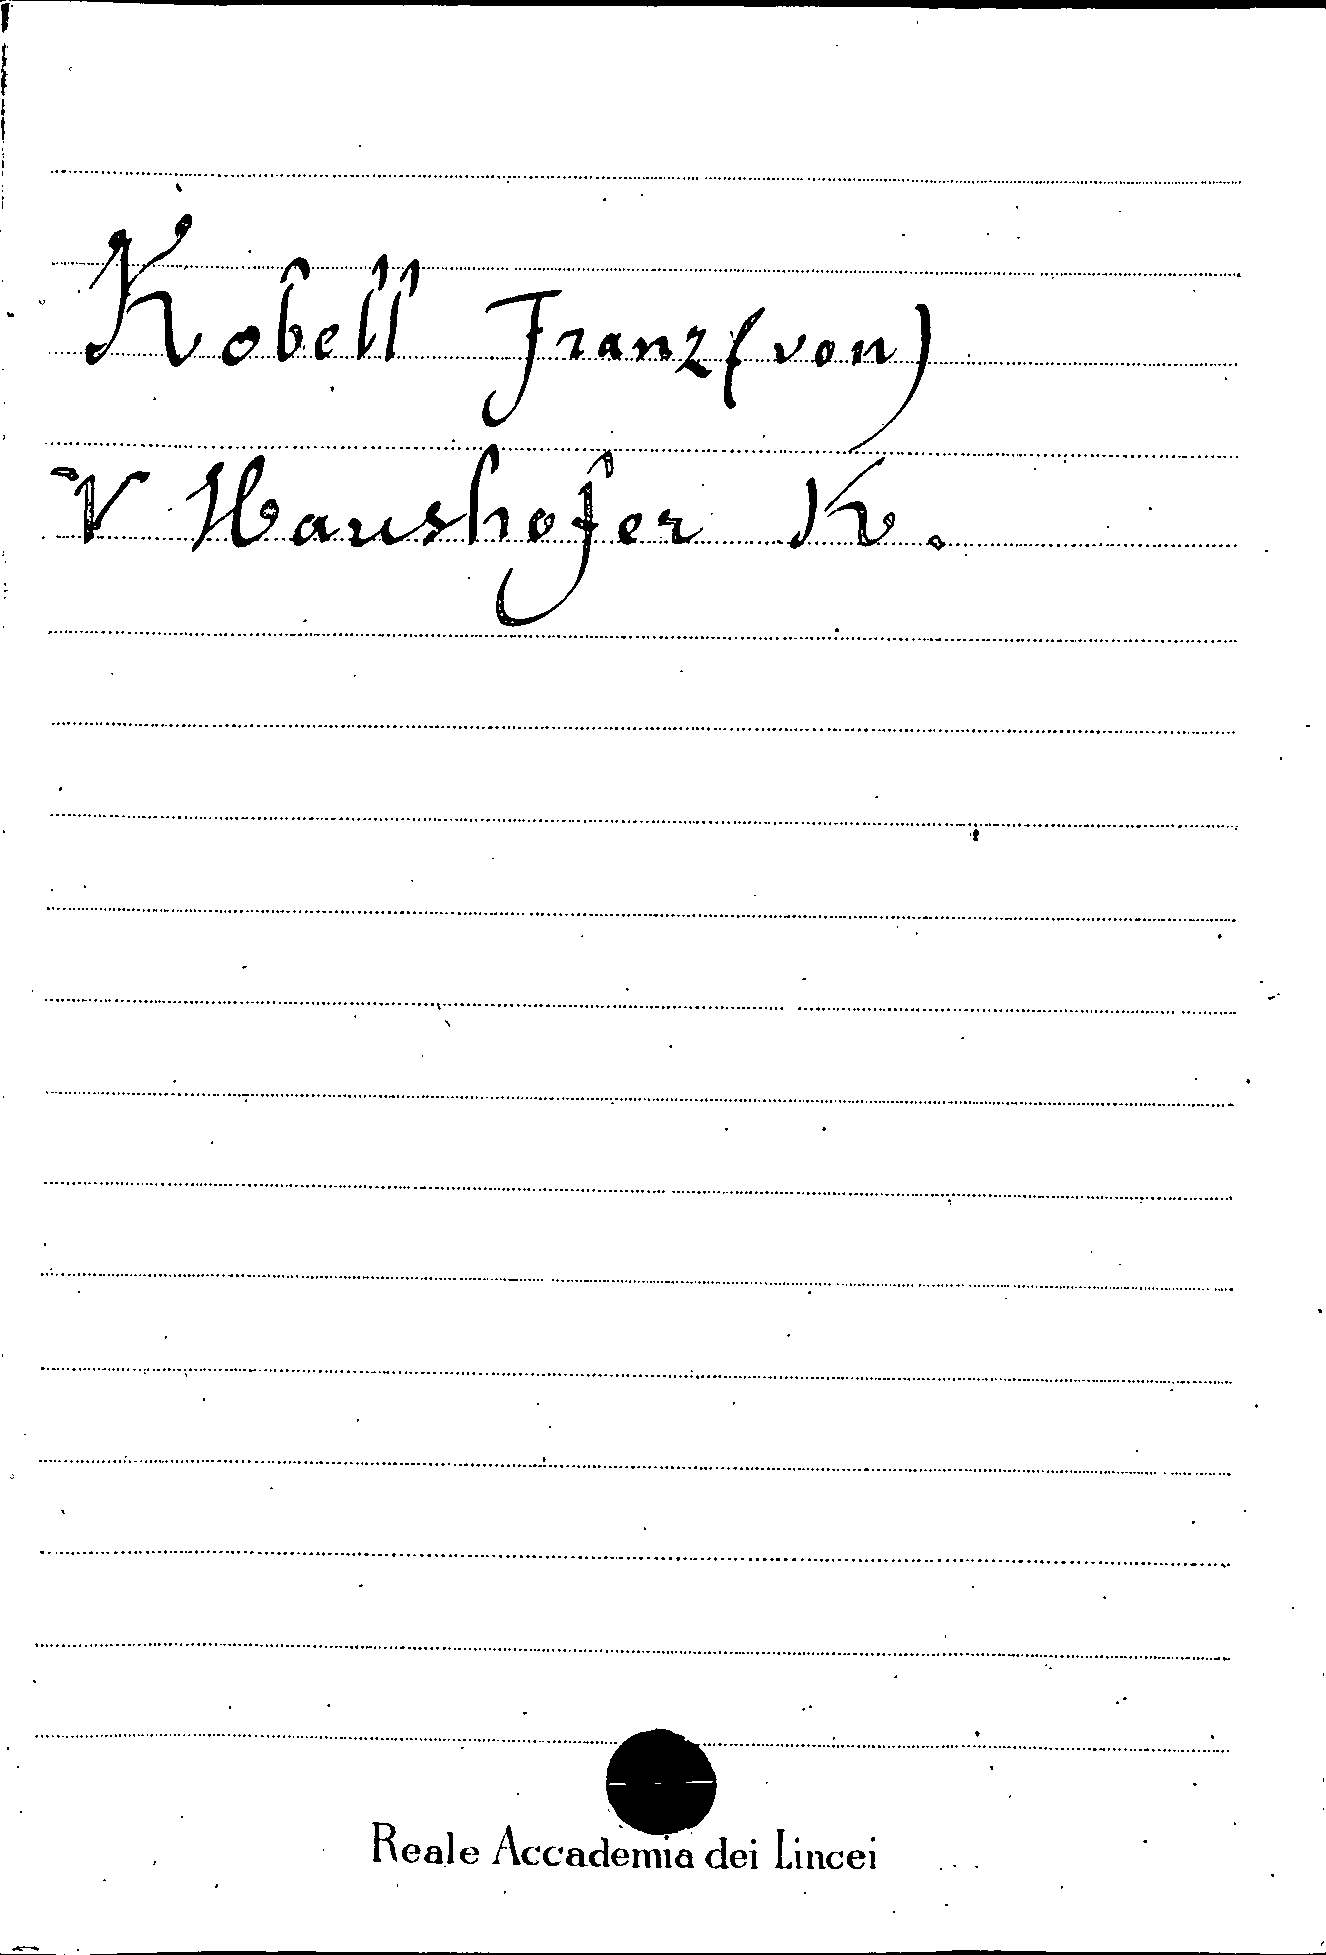 Kobell Franz (von)
V Haushofer K.
Reale Accademia dei Lincei